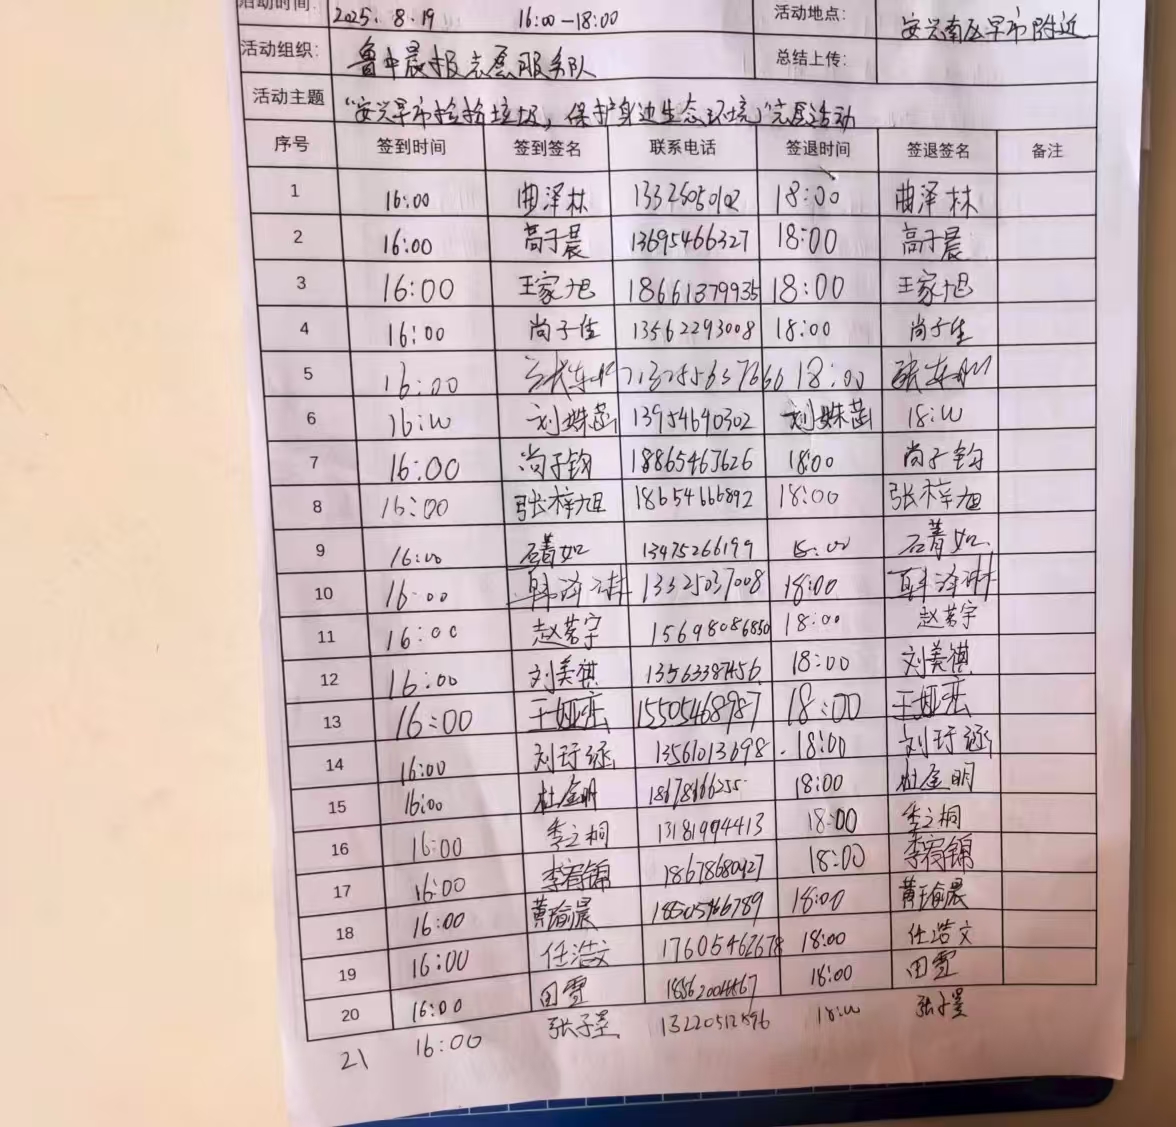 活动时间: 2025.8.19 16:00-18:00 活动地点: 安兴南区早市附近
活动组织: 鲁中晨报志愿服务队 总结上传:
活动主题 "安兴早市捡拾垃圾,保护身边生态环境"志愿活动
序号 签到时间 签到签名 联系电话 签退时间 签退签名 备注
1 16:00 曲泽林 18:00 曲泽林
2 16:00 高子晨 13695466327 18:00 高子晨
3 16:00 王家旭 18661379935 18:00 王家旭
4 16:00 尚子佳 13562293008 18:00 尚子佳
5 16:00 18:00
6 16:00 刘姝菡 13954640302 刘姝菡 18:00
7 16:00 尚子钧 18865463626 18:00 尚子钧
8 16:00 张梓旭 18654666892 18:00 张梓旭
9 16:00 石菁如 13475266199 18:00 石菁如
10 16:00 13325037008 18:00
11 16:00 赵茗宇 15698086850 18:00 赵茗宇
12 16:00 刘美祺 13563387456 18:00 刘美祺
13 16:00 王娅恋 15505468987 18:00 王娅恋
14 16:00 刘玗涵 13561013698 18:00 刘玗涵
15 16:00 杜金明 18:00 杜金明
16 16:00 季之桐 13181994413 18:00 季之桐
17 16:00 李宥锦 18678680927 18:00 李宥锦
18 16:00 黄瑜晨 18505466789 18:00 黄瑜晨
19 16:00 任浩文 17605462678 18:00 任浩文
20 16:00 田雪 18:00 田雪
21 16:00 张子墨 13220512896 18:00 张子墨